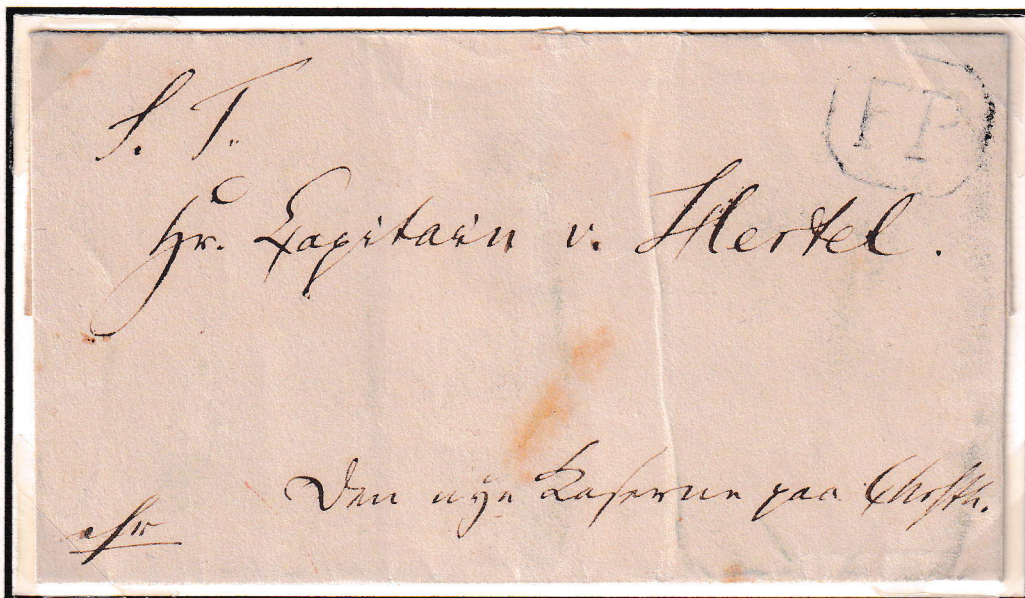 S. T.
FP
Hr. Capitain v. Hertel.
Den nye Caserne paa Chrsth.